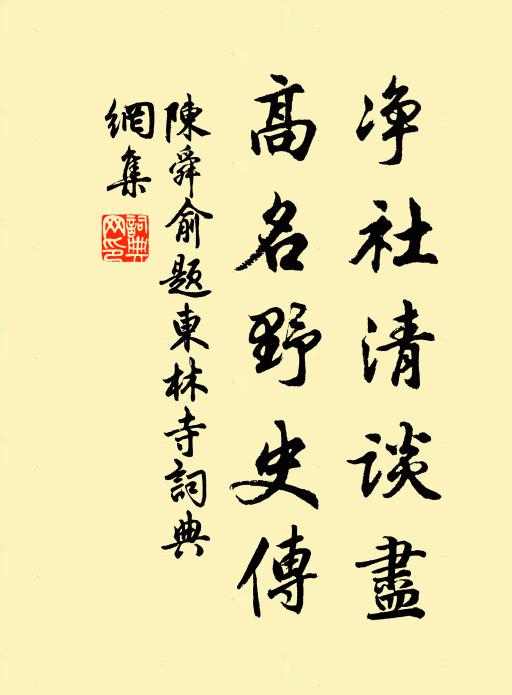 净社清談盡
高名野史傳
陳舜俞題東林寺詞典
網集
詞典
网印